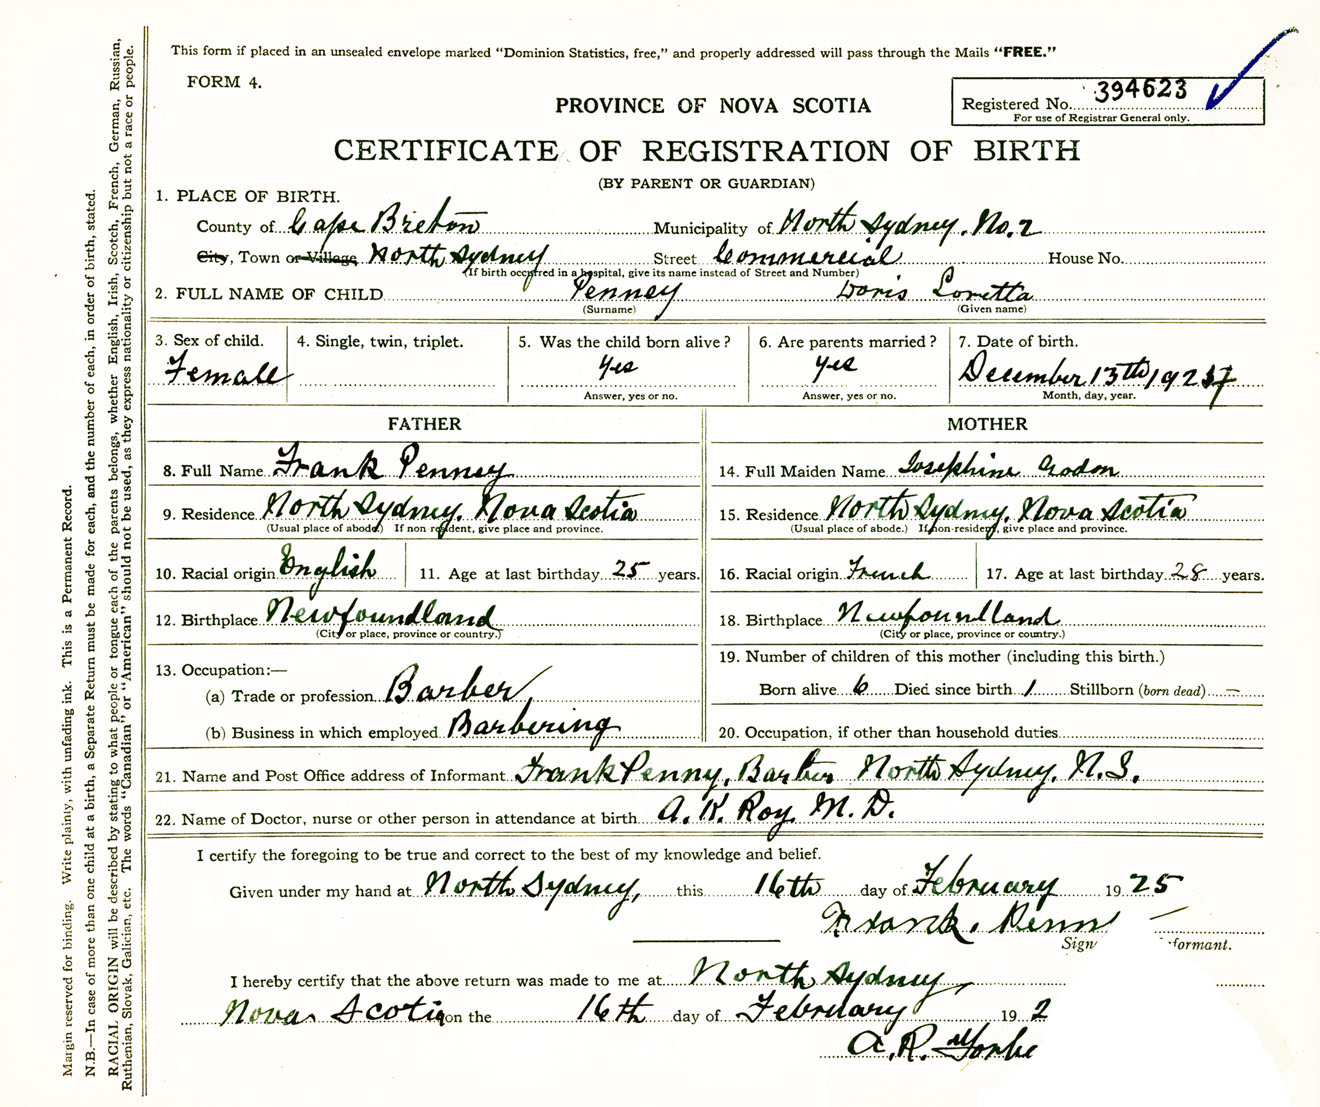 This form if placed in an unsealed envelope marked “Dominion Statistics, free,” and properly addressed will pass through the Mails “FREE.”
FORM 4.
394623
PROVINCE OF NOVA SCOTIA
Registered No.
For use of Registrar General only.
CERTIFICATE OF REGISTRATION OF BIRTH
(BY PARENT OR GUARDIAN)
1. PLACE OF BIRTH.
County of Cape Breton Municipality of North Sydney. No. 2
City, Town or Village North Sydney Street Commercial House No.
(If birth occurred in a hospital, give its name instead of Street and Number)
2. FULL NAME OF CHILD Penney Doris Loretta
(Surname) (Given name)
3. Sex of child. 4. Single, twin, triplet. 5. Was the child born alive? 6. Are parents married? 7. Date of birth.
Female yes yes December 13th 192
Answer, yes or no. Answer, yes or no. Month, day, year.
FATHER MOTHER
8. Full Name Frank Penney 14. Full Maiden Name Josephine
9. Residence North Sydney. Nova Scotia 15. Residence North Sydney. Nova Scotia
(Usual place of abode) If non resident, give place and province. (Usual place of abode.) If non-resident, give place and province.
10. Racial origin English 11. Age at last birthday 25 years. 16. Racial origin French 17. Age at last birthday 28 years.
12. Birthplace Newfoundland 18. Birthplace Newfoundland
(City or place, province or country.) (City or place, province or country.)
13. Occupation:— 19. Number of children of this mother (including this birth.)
(a) Trade or profession Barber Born alive 6 Died since birth 1 Stillborn (born dead) —
(b) Business in which employed Barbering 20. Occupation, if other than household duties
21. Name and Post Office address of Informant Frank Penny, Barber North Sydney. N.S.
22. Name of Doctor, nurse or other person in attendance at birth A. K. Roy M. D.
I certify the foregoing to be true and correct to the best of my knowledge and belief.
Given under my hand at North Sydney, this 16th day of February 1925
Frank. Penn
Sign formant.
I hereby certify that the above return was made to me at North Sydney
Nova Scotia on the 16th day of February 192
A. R. Forbe
Margin reserved for binding. Write plainly, with unfading ink. This is a Permanent Record.
N.B.—In case of more than one child at a birth, a Separate Return must be made for each, and the number of each, in order of birth, stated.
RACIAL ORIGIN will be described by stating to what people or tongue each of the parents belongs, whether English, Irish, Scotch, French, German, Russian,
Ruthenian, Slovak, Galician, etc. The words “Canadian” or “American” should not be used, as they express nationality or citizenship but not a race or people.